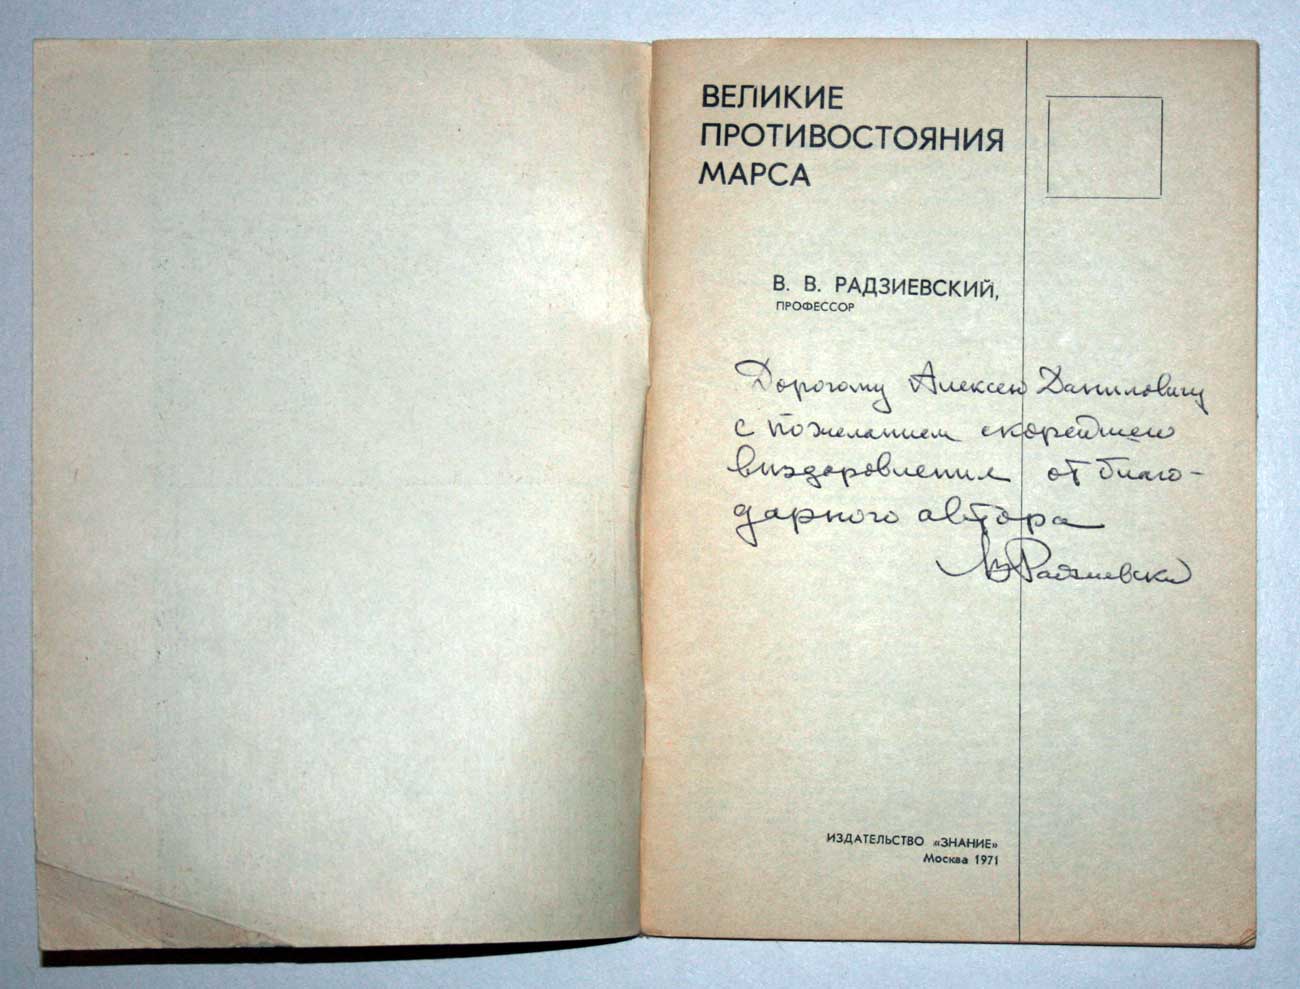 ВЕЛИКИЕ
ПРОТИВОСТОЯНИЯ
МАРСА
В. В. РАДЗИЕВСКИЙ,
ПРОФЕССОР
Дорогому Алексею Даниловичу
с пожеланием скорейшего
выздоровления от благо-
дарного автора
ВРадзиевский
ИЗДАТЕЛЬСТВО «ЗНАНИЕ»
Москва 1971